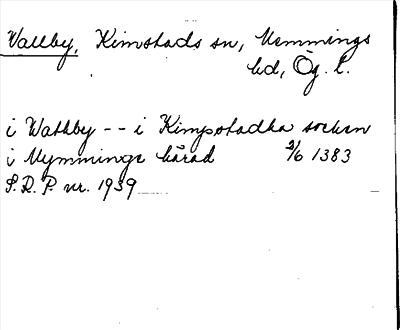 Vallby, Kimstads sn, Memmings
hd, Ög. l.
i Wathby -- i Kimpstadha sochen
i Mymmings härad 2/6 1383
S.R.P. nr. 1939